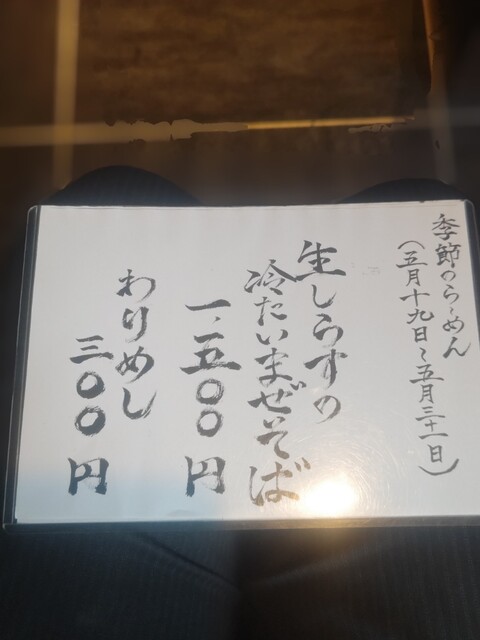 季節のらーめん
(五月十九日~五月三十一日)
生しらすの
冷たいまぜそば
一、五〇〇円
わりめし
三〇〇円